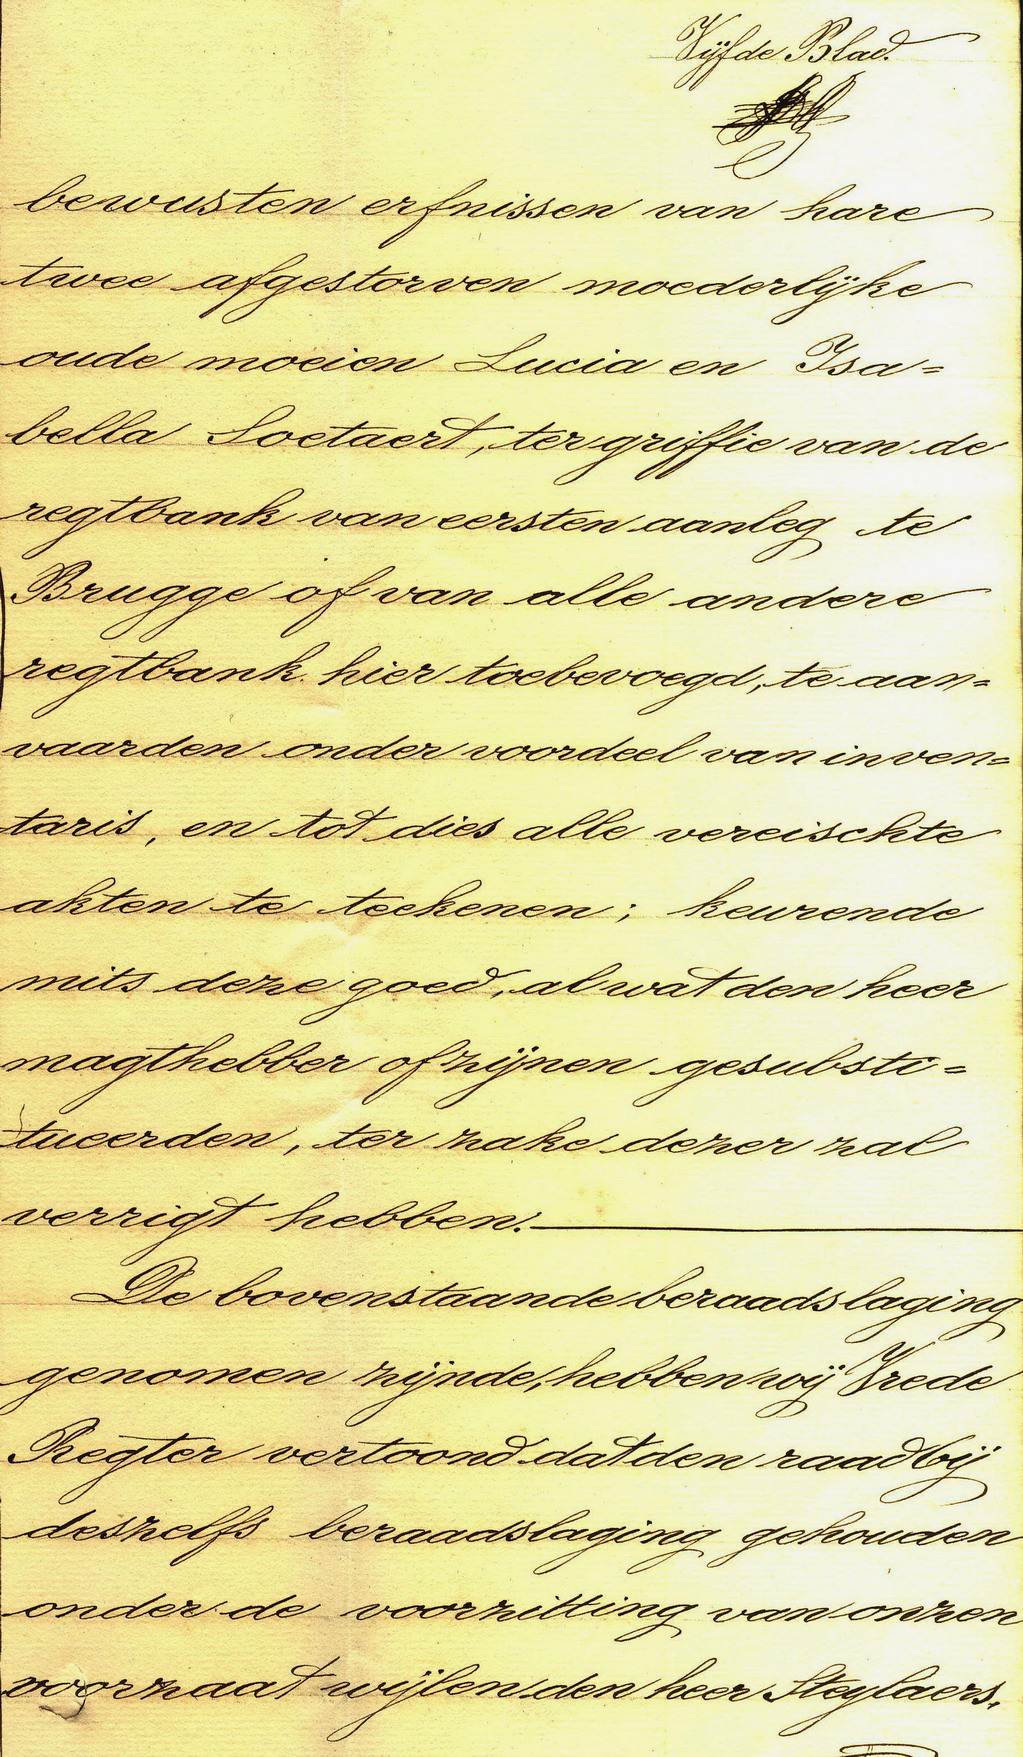 Vijfde Blad.
bewusten erfnissen van hare
twee afgestorven moederlijke
oude moeien Lucia en Isa=
bella Soetaert, ter griffie van de
regtbank van eersten aanleg te
Brugge of van alle andere
regtbank hier toebevoegd, te aan=
vaarden onder voordeel van inven=
taris, en tot dies alle vereischte
akten te teekenen; keurende
mits deze goed, al wat den heer
magthebber of zijnen gesubsti=
tueerden, ter zake dezer zal
verrigt hebben.
De bovenstaande beraadslaging
genomen zijnde, hebben wij Vrede
Regter vertoond dat den raad bij
deszelfs beraadslaging gehouden
onder de voorzitting van onzen
voorzaat wijlen den heer Steylaers,